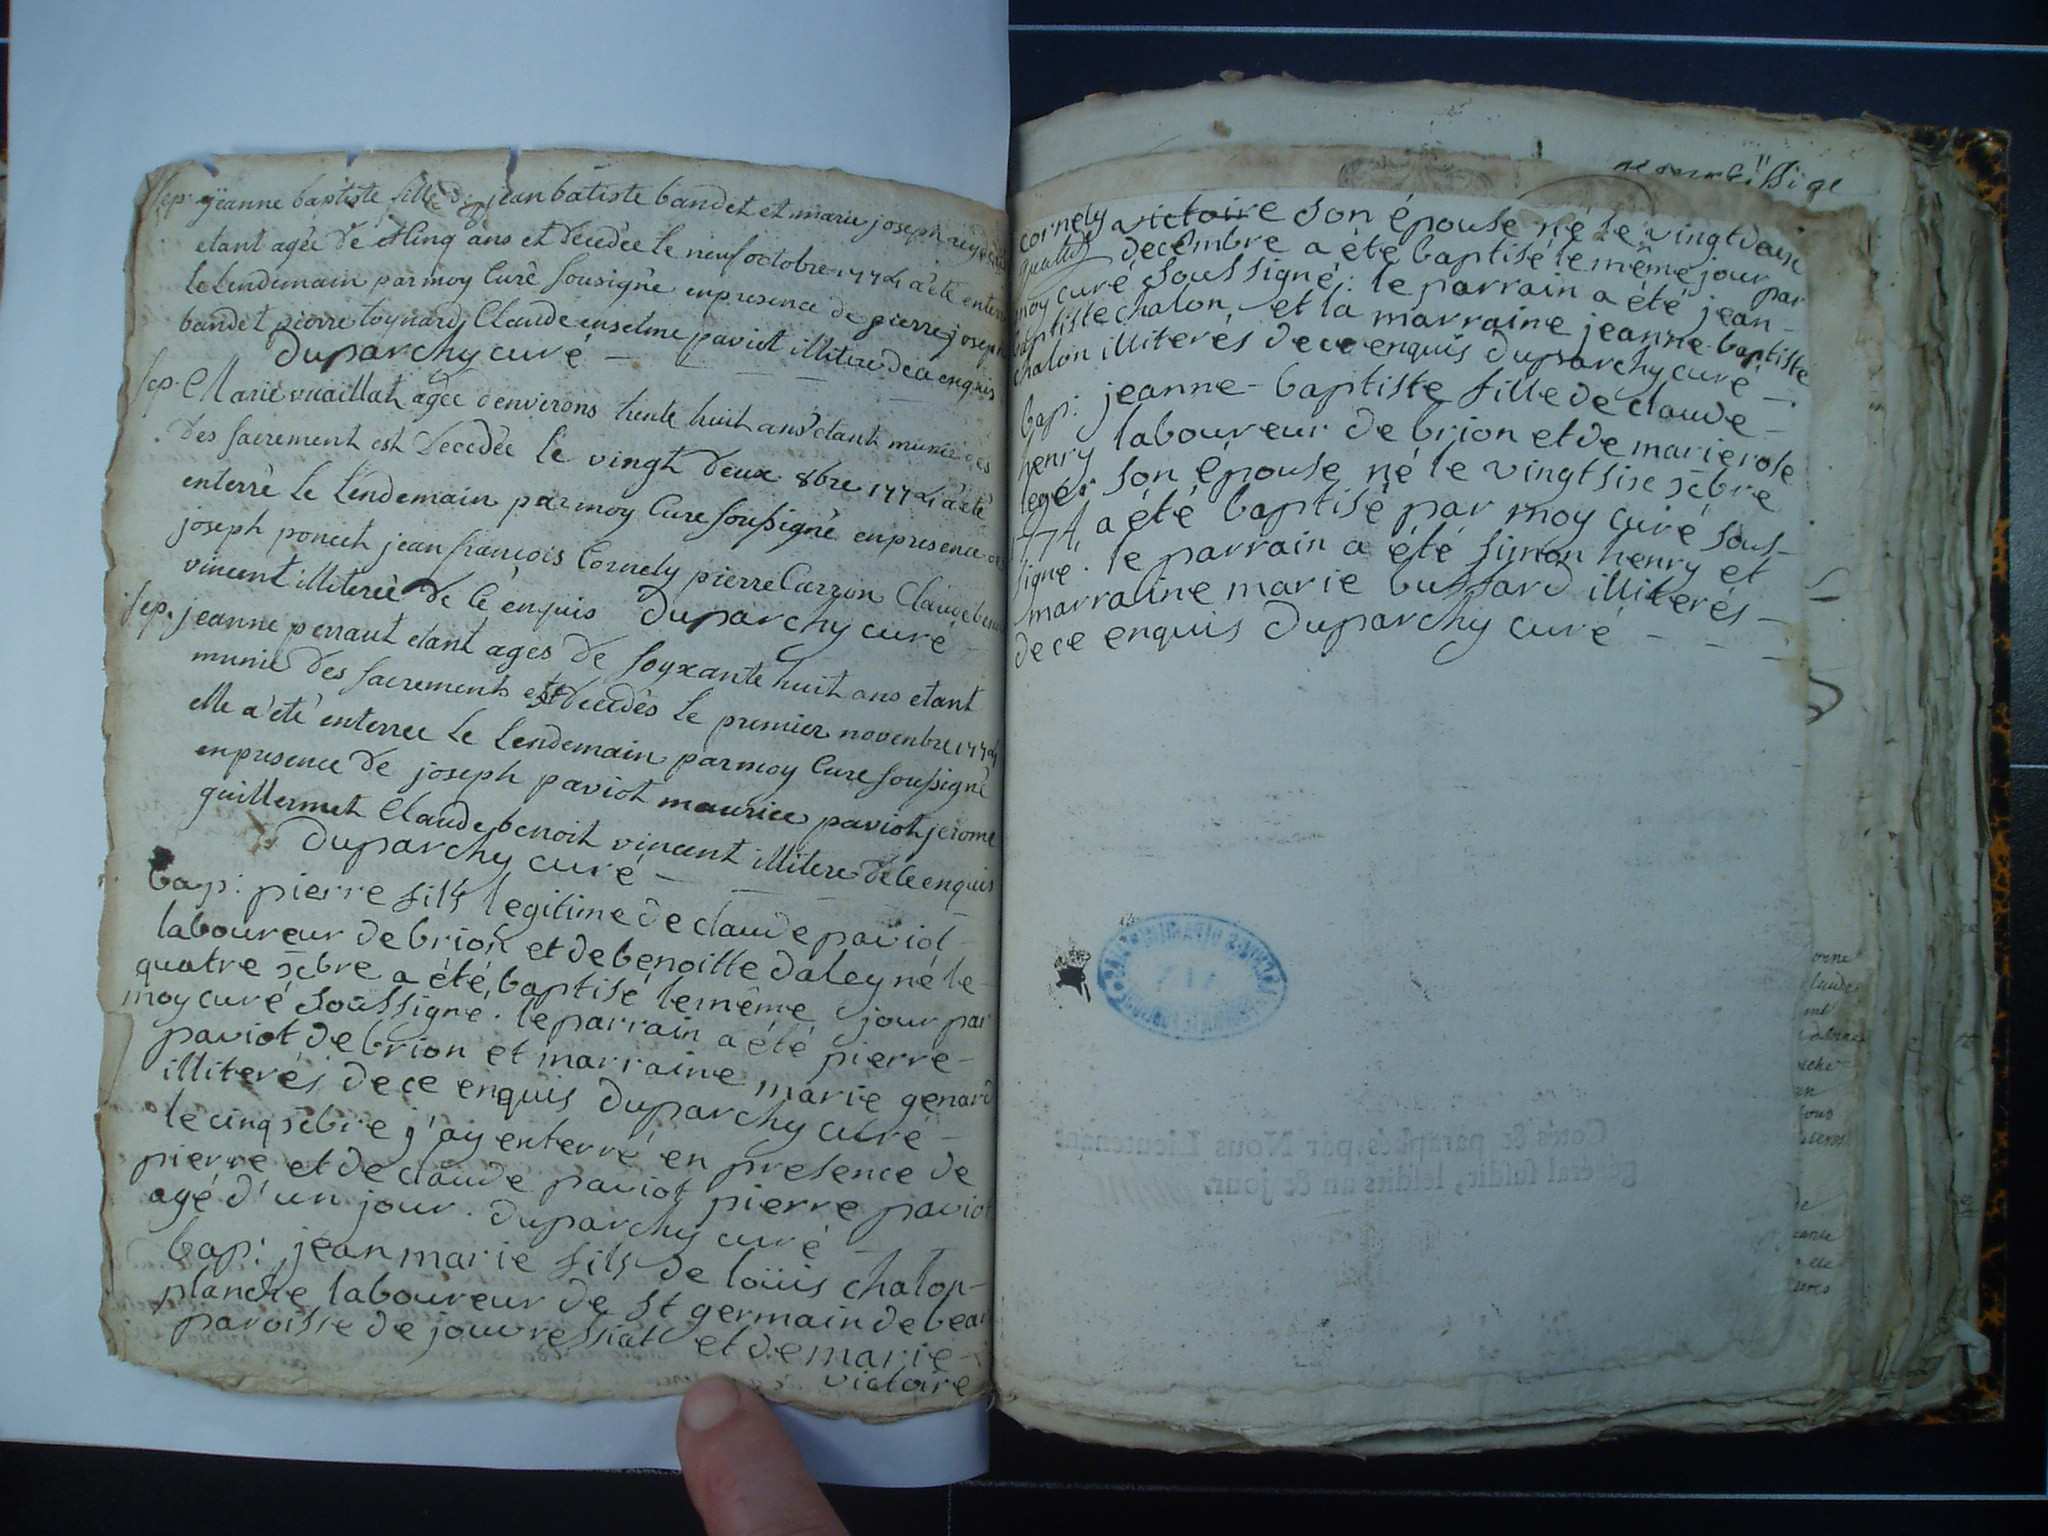 sep. jeanne baptiste fille de jean batiste bandet et marie joseph
etant agée de cinq ans et decedée le neuf octobre 1774 a été enterré
le lendemain par moy curé sousigné en presence de pierre joseph
bandet pierre toynard Claude enselme paviot illitere de ce enquis
Duparchy curé
sep. Marie vuaillat agée d'environs trente huit ans étant munie des
des sacrement est Decedée le vingt deux 8bre 1774 a été
enterré le lendemain par moy Curé soussigné en presence de
joseph poncet jean françois Cornely pierre Carron Claude benoit
vincent illiterés de cé enquis Duparchy curé
sep. jeanne perraut etant agés de soyxante huit ans etant
munie des sacrements est decedés le premier novenbre 1774
elle a été enterrée le lendemain par moy Curé soussigné
en presence de joseph paviot maurice paviot jerome
guillermet Claude benoit vincent illitere de ce enquis
Duparchy curé
bap: pierre fils legitime de claude paviot
laboureur de brion et de benoitte daley né le
quatre xcbre a été baptisé le même jour par
moy curé soussigné. le parrain a été pierre
paviot de brion et marraine marie genard
illiterés de ce enquis Duparchy curé
le cinq xcbre j'ay enterré en presence de
pierre et de claude paviot pierre paviot
agé d'un jour. duparchy curé
bap: jean marie fils de loüis chalon
planche laboureur de st germain de bear
paroisse de jouvressiat et de marie
victoire
cornely victoire son épouse né le vingt deux
decembre a été baptisé le même jour par
moy curé soussigné: le parrain a été jean-
baptiste chalon, et la marraine jeanne-baptiste
chalon illiterés de ce enquis duparchy curé
bap: jeanne-baptiste fille de claude
henry laboureur de brion et de marie rose
leger son épouse né le vingt six xcbre
1774, a été baptisé par moy curé sous-
signé. le parrain a été simon henry et
marraine marie bussard illiterés
de ce enquis Duparchy curé
Cotés & paraphés par Nous Lieutenant
général susdit, lesdits an & jour.